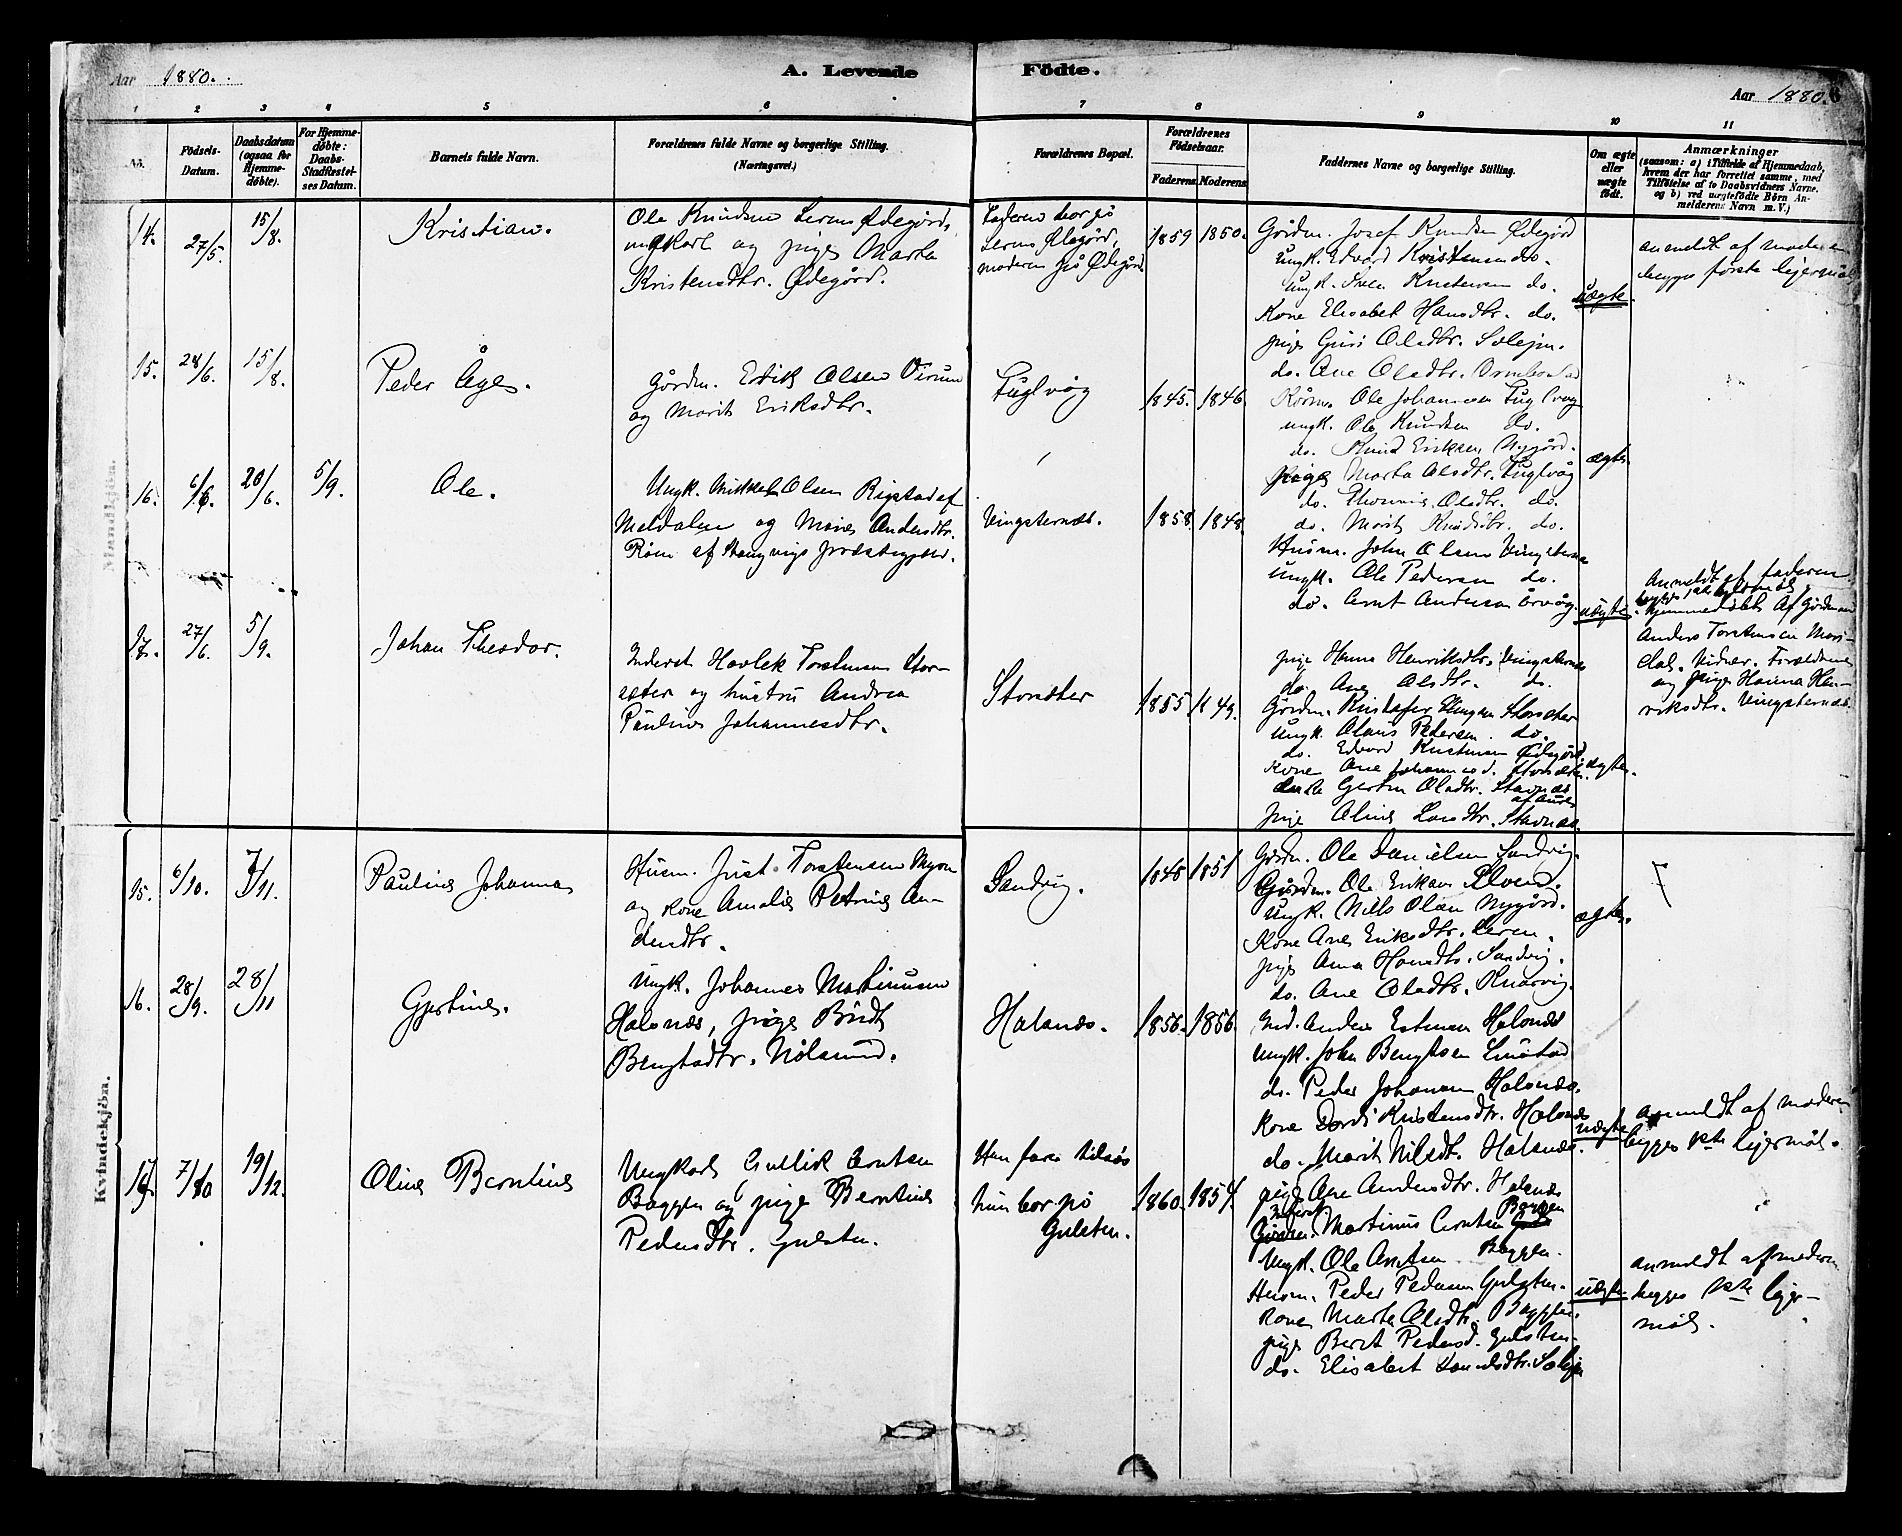 Aar 1880.
A. Levende Födte.
Aar 1880. 6
1 2 3 4 5 6 7 8 9 10 11
No.
Födsels-Datum.
Daabsdatum (ogsaa for Hjemmedöbte).
For Hjemmedöbte: Daabs-Stadfæstelses Datum.
Barnets fulde Navn.
Forældrenes fulde Navne og borgerlige Stilling. (Næringsvei.)
Forældrenes Bopæl.
Forældrenes Födselsaar.
Faderens. Moderens.
Faddernes Navne og borgerlige Stilling.
Om ægte eller uægte födt.
Anmærkninger
(saasom: a) i Tilfælde af Hjemmedaab, hvem der har forrettet samme, med Tilföielse af to Daabsvidners Navne, og b) ved uægtefödte Börn Anmelderens Navn m. V.)
Mandkjön.
14. 27/5. 15/8. Kristian.
Ole Knudsen Lerens Ødegård,
ungkarl og pige Marta
Kristensdtr. Ødegård.
Faderen bor på
Lerens Ødegård,
moderen på Ødegård
1859 1850.
Gårdm. Josef Knudsen Ødegård
Ungk. Edvard Kristensen do.
Ungk. Sven Kristensen do.
Kone Elisabet Hansdtr. do.
pige Guri Olsdtr. Solejm.
do. Ane Olsdtr.
uægte.
anmeldt af moderen
begges første lejermål
15. 28/6. 15/8. Peder Åges.
Gårdm. Erik Olsen Virum
og Marit Eriksdtr.
Fuglvåg
1845. 1846
Ole Johannesen Fuglvåg
ungk. Ole Knudsen do.
do. Knud Eriksen Nygård.
pige Marta Olsdtr. Fuglvåg
do. Olsdtr. do.
do. Marit Knudsdtr. do.
ægte.
16. 6/6. 20/6. 5/9. Ole.
Ungk. Mikkel Olsen Rigstad af
Meldalen og Andersdtr.
af Stangvigs præstegjeld.
Vingsternæs.
1858. 1848.
Husm. John Olsen Vingsternes
Ungk. Ole Pedersen do.
do. Arnt Andersen Årvåg.
pige Hanna Henriksdtr. Vingsternes
do. Ane Olsdtr. do.
uægte
Anmeldt af faderen.
Hjemmedøbt af Gårdman
Anders Torstensen
Vidner. Forældrene
og pige Hanna Hen-
riksdtr. Vingsternæs.
17. 27/6. 5/9. Johan Theodor.
Inderst Havlek Torstensen Stor-
sæter og hustru Andrea
Pauline Johannesdtr.
Storsæter
1855. 1849.
Gårdm. Kristofer Storsæter
Ungk. Olaus Pedersen. do.
do. Edvard Kristensen Ødegård.
Kone Ane Johannesd. Storsæter.
Gertru Olsdtr. Stavnæs
af Aure
Pige Larsdtr. Stavnæs.
ægte.
Kvindekjön.
15. 6/10. 7/11. Pauline Johanna
Husm. Just Torstensen Myra
og Kone Amalie Petrine An-
dersdtr.
Sandvig.
1848 1851
Gårdm. Ole Danielsen Sandvig.
Gårdm. Ole Eriksen
Ungk. Nils Olsen Nygård.
Kone Ane Eriksdtr. Leren.
pige Anna Hansdtr. Sandvig.
do. Ane Olsdtr. Knarvig.
ægte.
7
16. 28/9. 28/11 Gjertine.
Ungk. Johannes Martinusen
Halsnæs, pige Brit
Bengtsdtr. Nålsund.
Halsnæs.
1856. 1856.
Ind. Anders Estensen Halsnæs
Ungk. John Bengtsen
do. Peder Johansen Halsnæs.
Kone Dordi Kristensdtr. Halsnæs
do. Marit Nilsdt. Halsnæs.
pige Ane Andersdtr. Halsnæs
uægte
anmeldt af moderen
begges 1ste lejermål.
17. 7/10 19/12. Oline Berntine
Ungkarl Gullik Arntsen
Baggen og pige Berntine
Pedersdtr. Gulsten.
Han farer tilsøs
hun bor på
Gulsten.
1860. 1854.
Inderst Martinus Arntsen Baggen
Ungk. Ole Arntsen Baggen.
Husm. Peder Pedersen Gulsten.
Kone Marta Olsdtr. Baggen.
pige Berit Pedersd. Gulsten.
do. Elisabet Solejm
uægte
anmeldt af moderen
begges 1ste lejer-
mål.